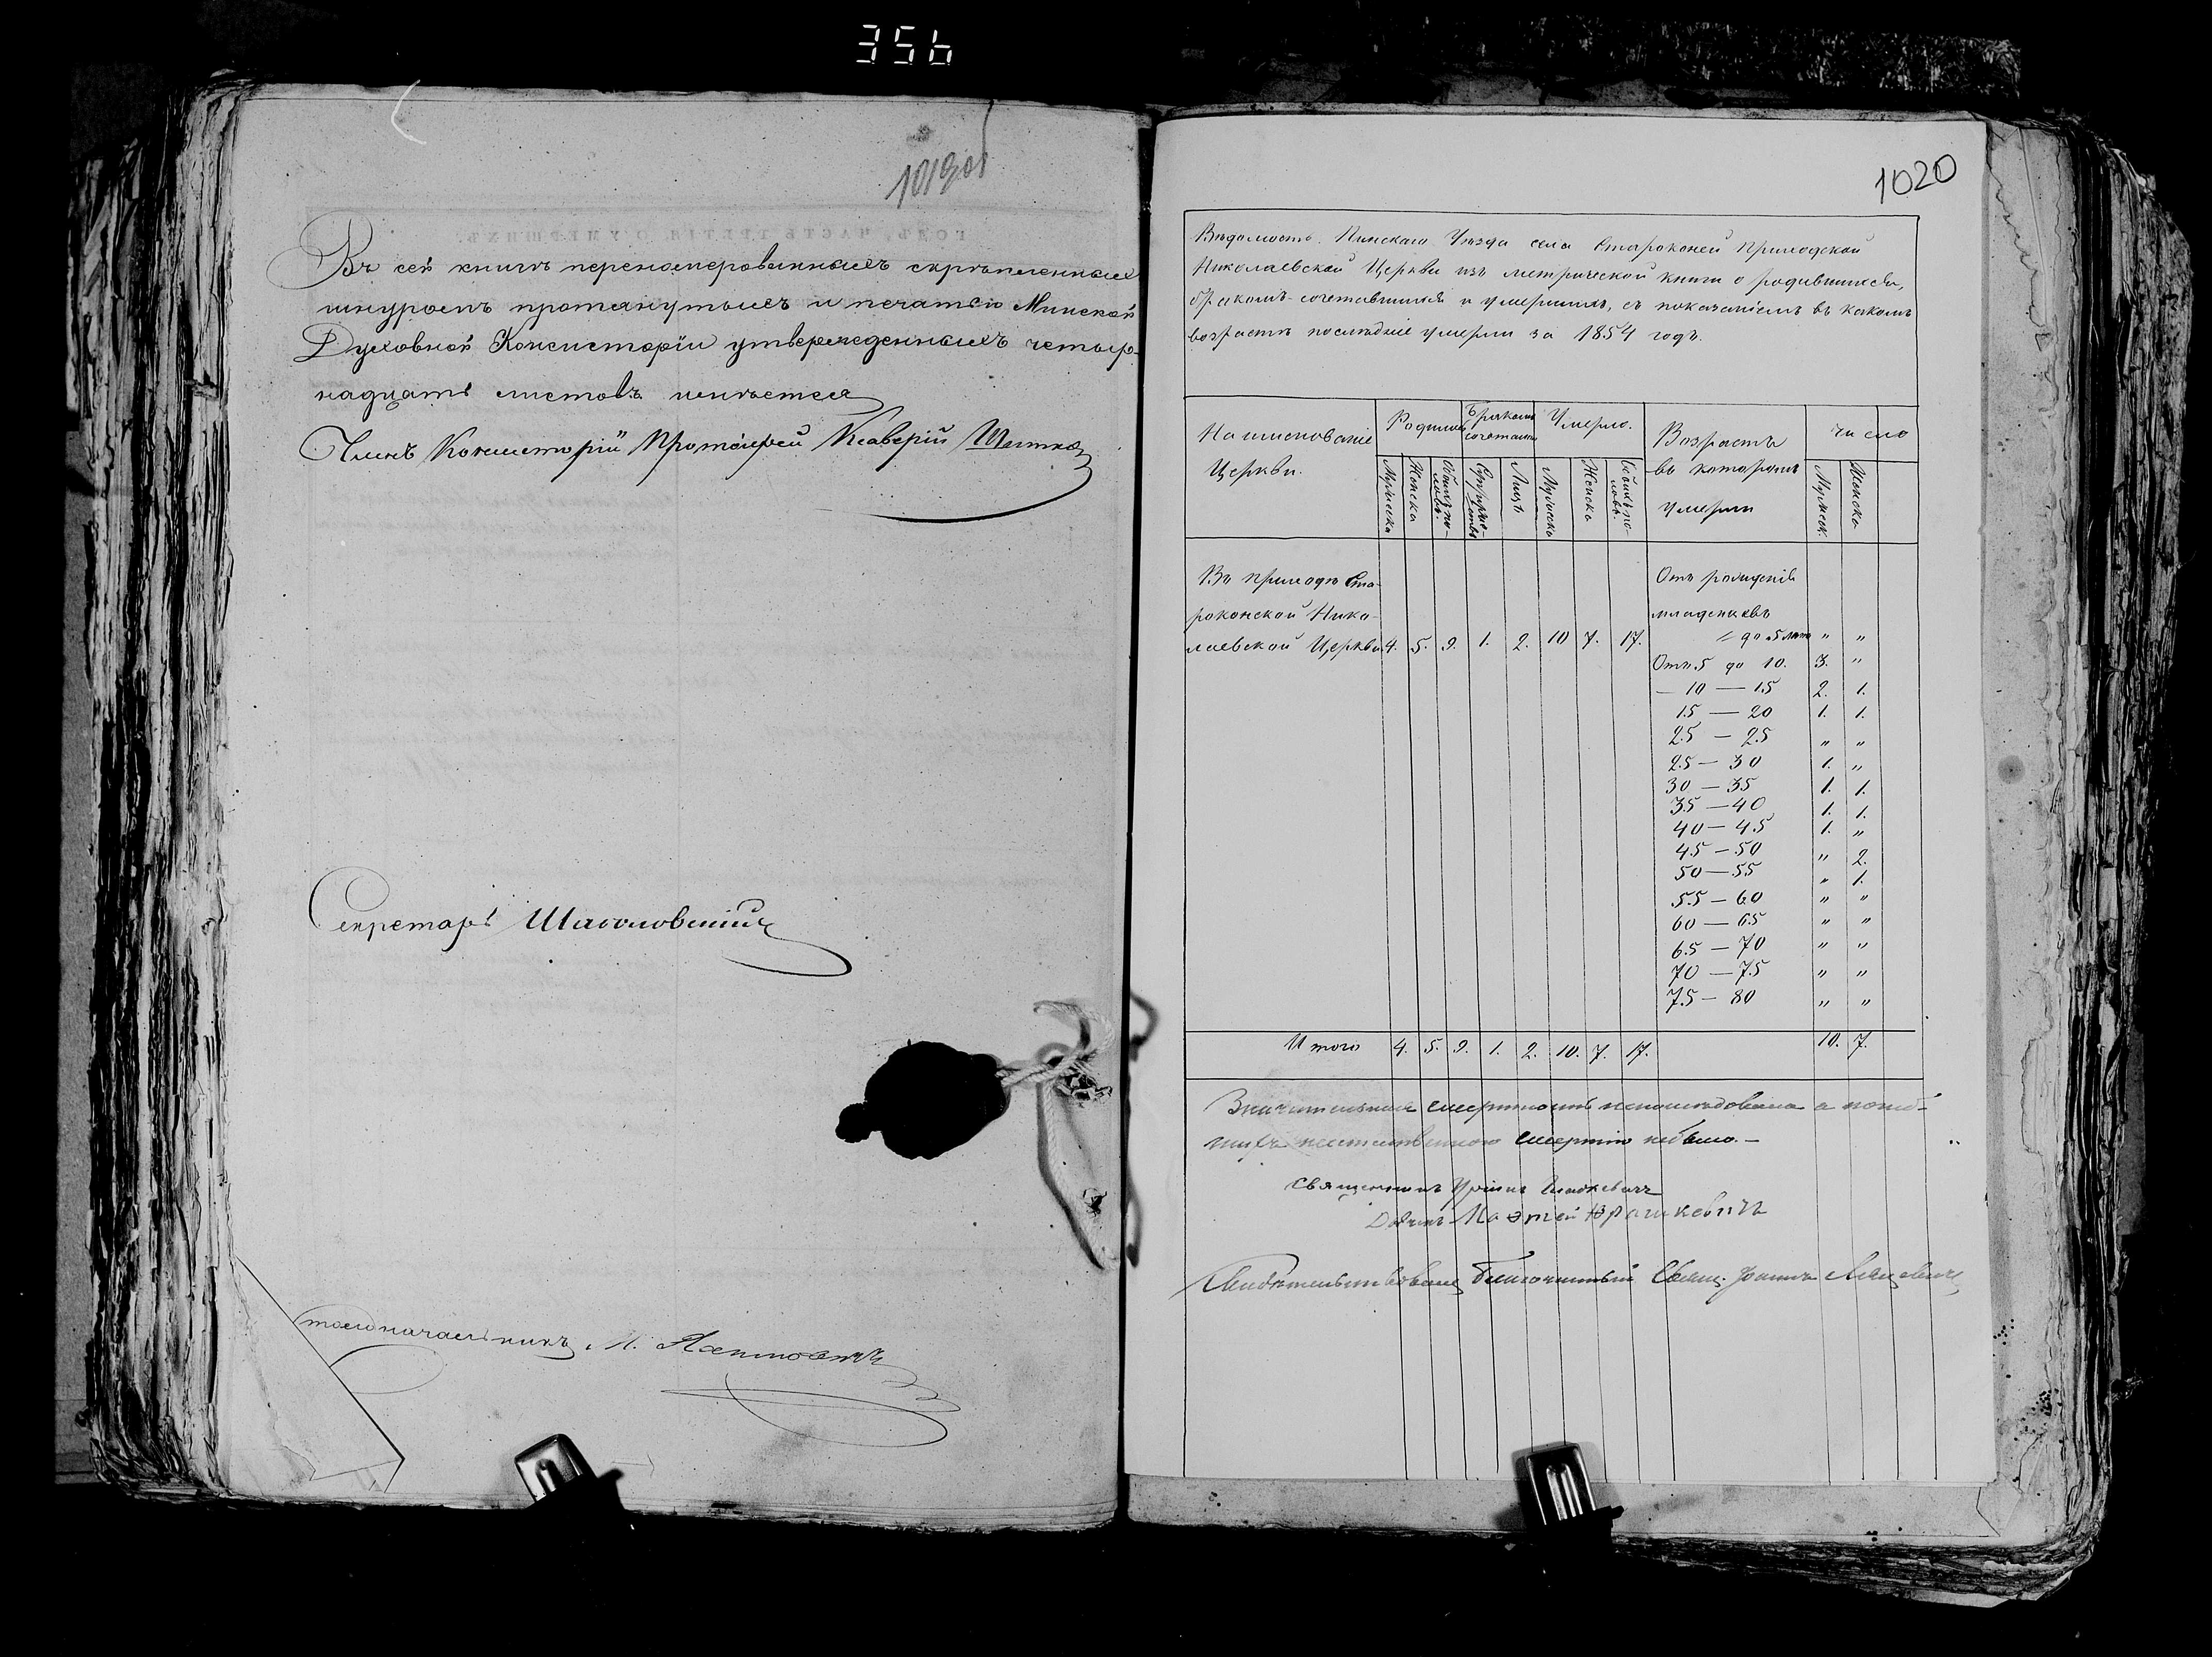 356
1019об
Въ сей книгѣ переномерованныхъ скрѣпленныхъ
шнуромъ протянутыхъ и печатью Минской
Духовной Консисторіи утвержденныхъ четыр-
надцать листовъ имѣется
Членъ Консисторіи Протоіерей Ксаверій
Секретарь
Столоначальникъ М.
1020
Вѣдомость Пинскаго Уѣзда села Староконей Приходской
Николаевской Церкви изъ метрической книги о родившихся,
бракомъ-сочетавшихся и умершихъ, съ показаніемъ въ какомъ
возрастѣ послѣдніе умерли за 1854 годъ.
Наименованіе Церкви.
Родилось
Бракомъ сочетались
Умерло.
Возрастъ въ которомъ умерли
число
Мужеска Женска Обоихъ по-ловъ. Супруже-ствъ Лицъ Мужеска Женска Обоихъ по-ловъ. Мужеск. Женска
Въ приходѣ Ста-
роконской Нико-
лаевской Церкви 4. 5. 9. 1. 2. 10 7. 17.
Отъ рожденія
младенцевъ
до 5 лѣтъ " "
Отъ 5 до 10. 3. "
— 10 — 15 2. 1.
15 — 20 1. 1.
25 — 25 " "
25 — 30 1. "
30 — 35 1. 1.
35 — 40 1. 1.
40 — 45 1. "
45 — 50 " 2.
50 — 55 " 1.
55 — 60 " "
60 — 65 " "
65 — 70 " "
70 — 75 " "
75 — 80 " "
Итого 4. 5. 9. 1. 2. 10. 7. 17. 10. 7.
смертность непослѣдовала а погиб-
шихъ неестественною смертію небыло.—
Священникъ
Дьячекъ
Свидѣтельствовалъ Благочинный Свящ. Іоаннъ